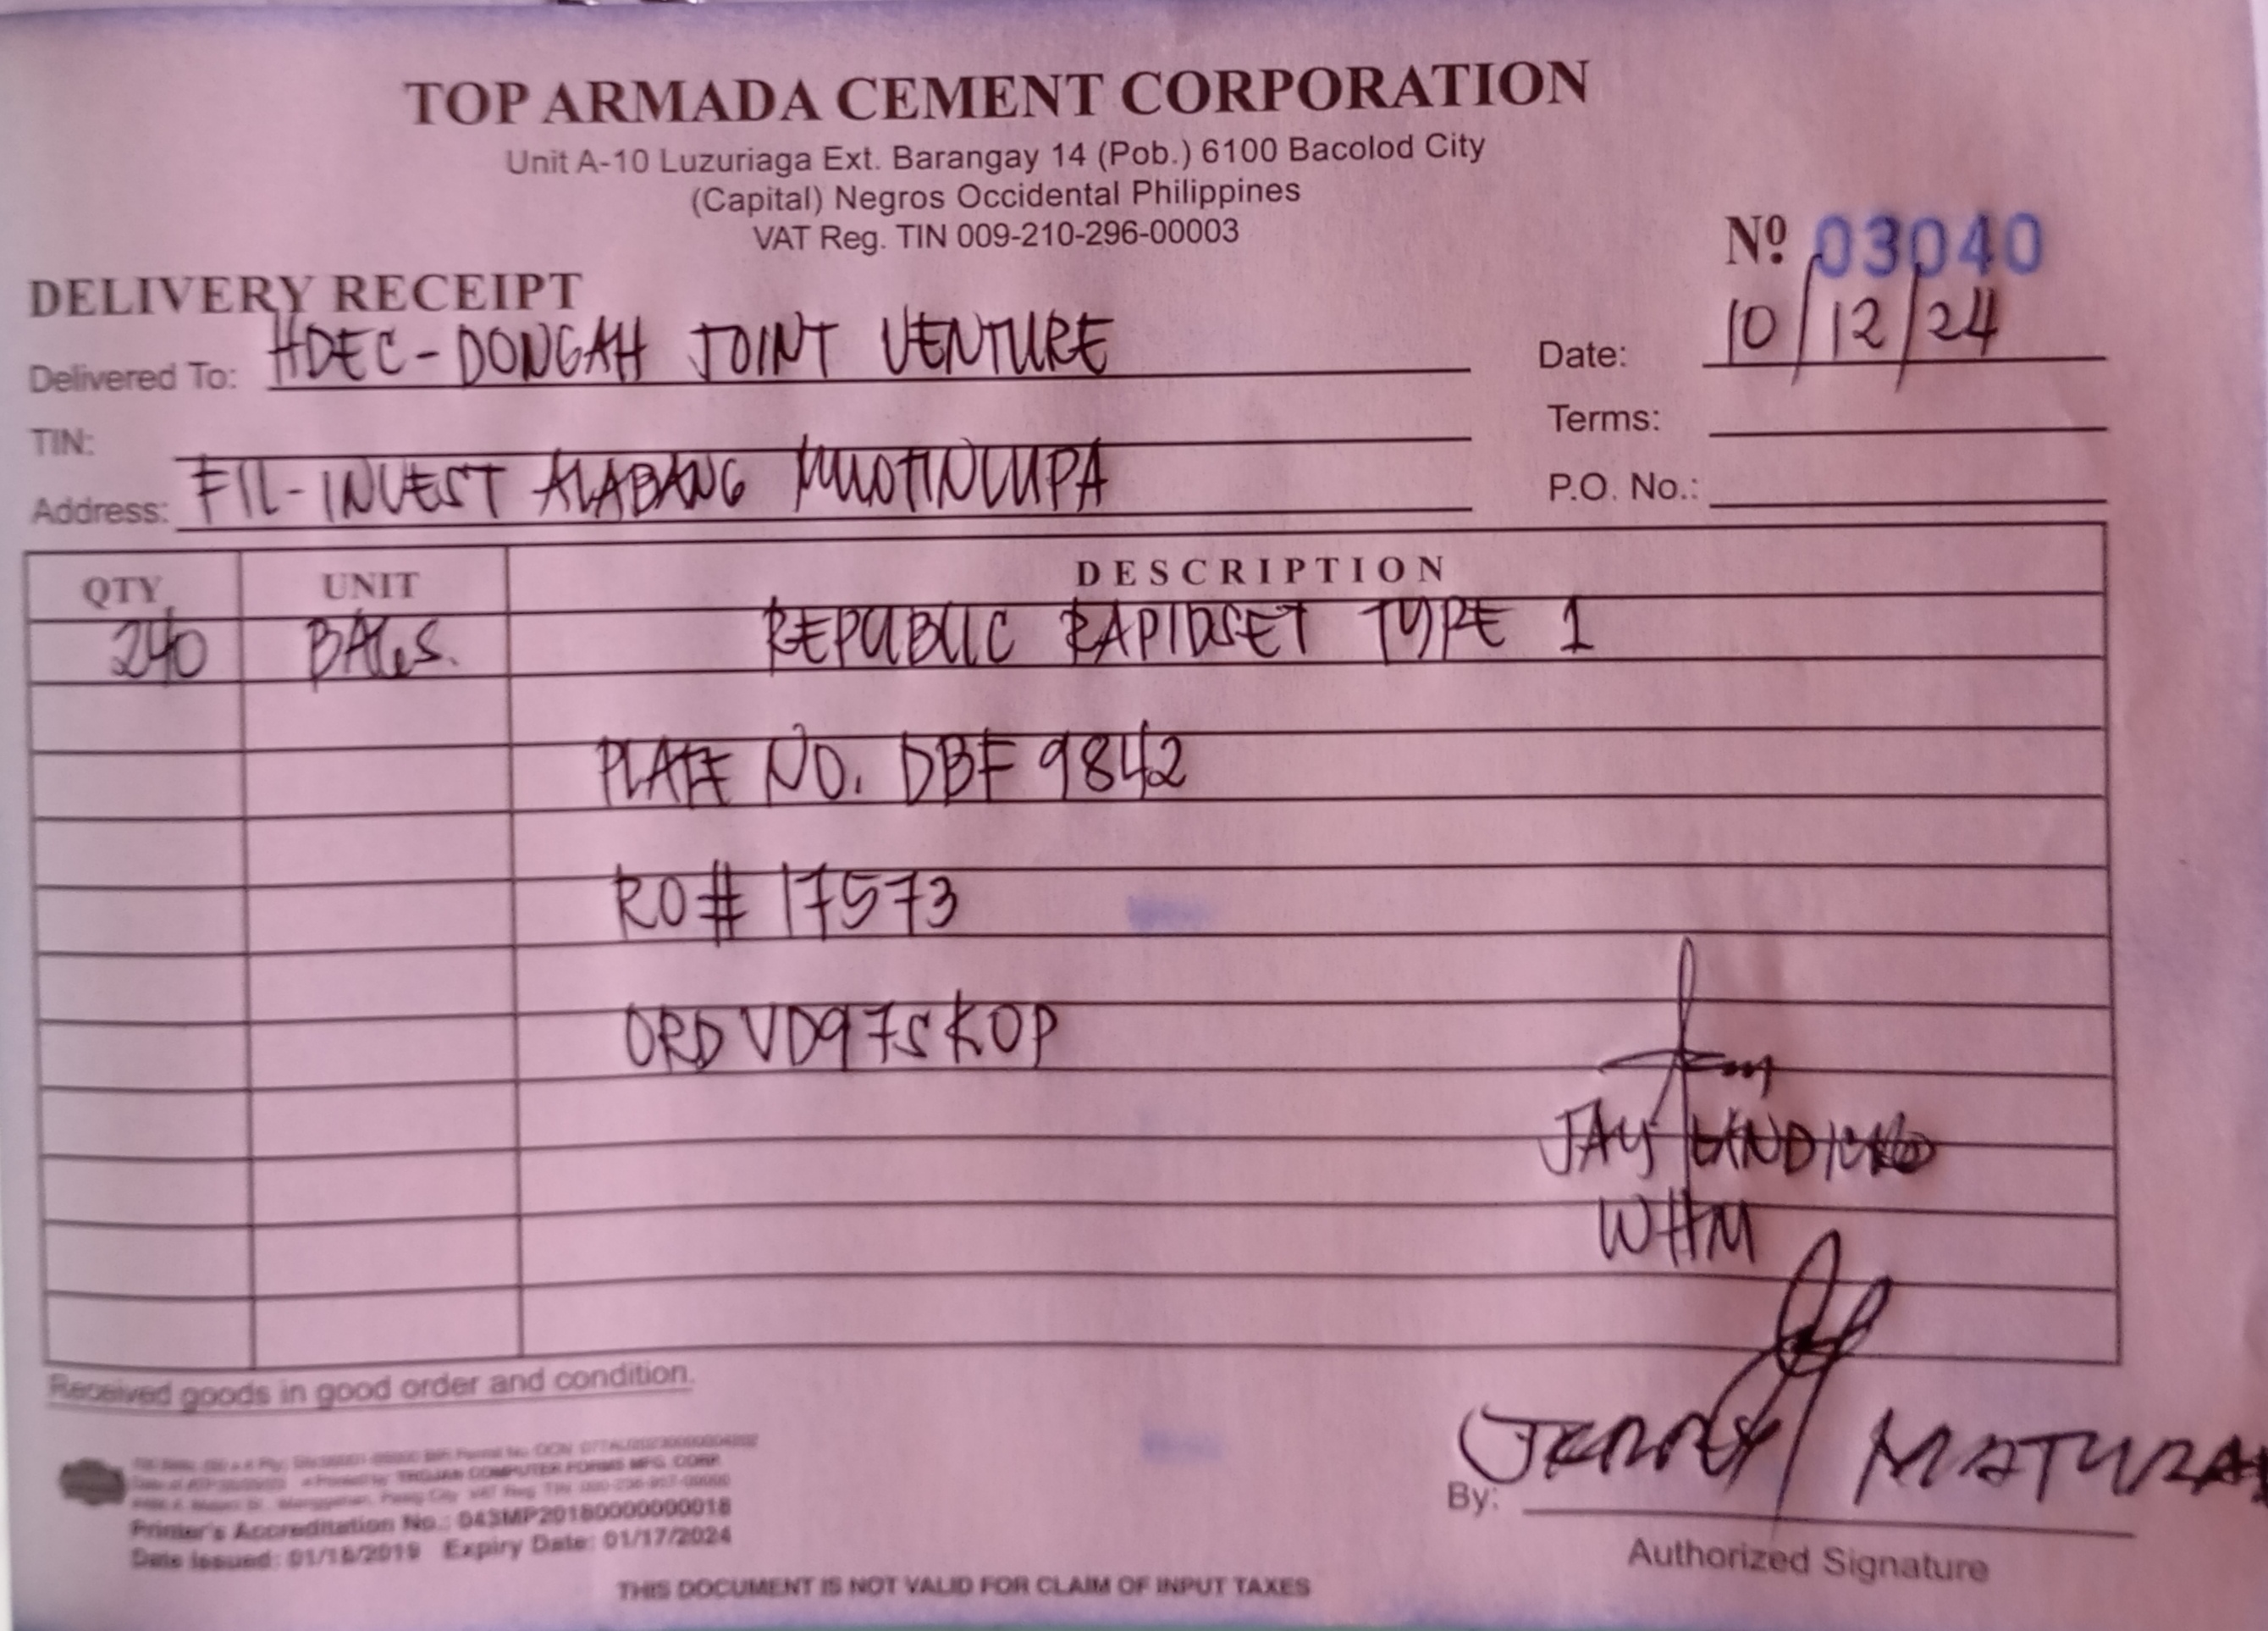 TOP ARMADA CEMENT CORPORATION
Unit A-10 Luzuriaga Ext. Barangay 14 (Pob.) 6100 Bacolod City
(Capital) Negros Occidental Philippines
VAT Reg. TIN 009-210-296-00003
Nº 03040
DELIVERY RECEIPT
Delivered To: HDEC-DONGAH JOINT VENTURE
Date: 10/12/24
TIN:
Terms:
Address: FIL-INVEST ALABANG MUNTINLUPA
P.O. No.:
QTY UNIT DESCRIPTION
240 BAGS. REPUBLIC RAPIDSET TYPE 1
PLATE NO. DBF 9842
RO# 17573
ORD VD97SKOP
JAY
WHM
Received goods in good order and condition.
JERRY MATURAN
By:
Authorized Signature
TROJAN COMPUTER FORMS MFG. CORP.
Printer's Accreditation No.: 043MP20180000000018
Date Issued: 01/18/2019 Expiry Date: 01/17/2024
THIS DOCUMENT IS NOT VALID FOR CLAIM OF INPUT TAXES